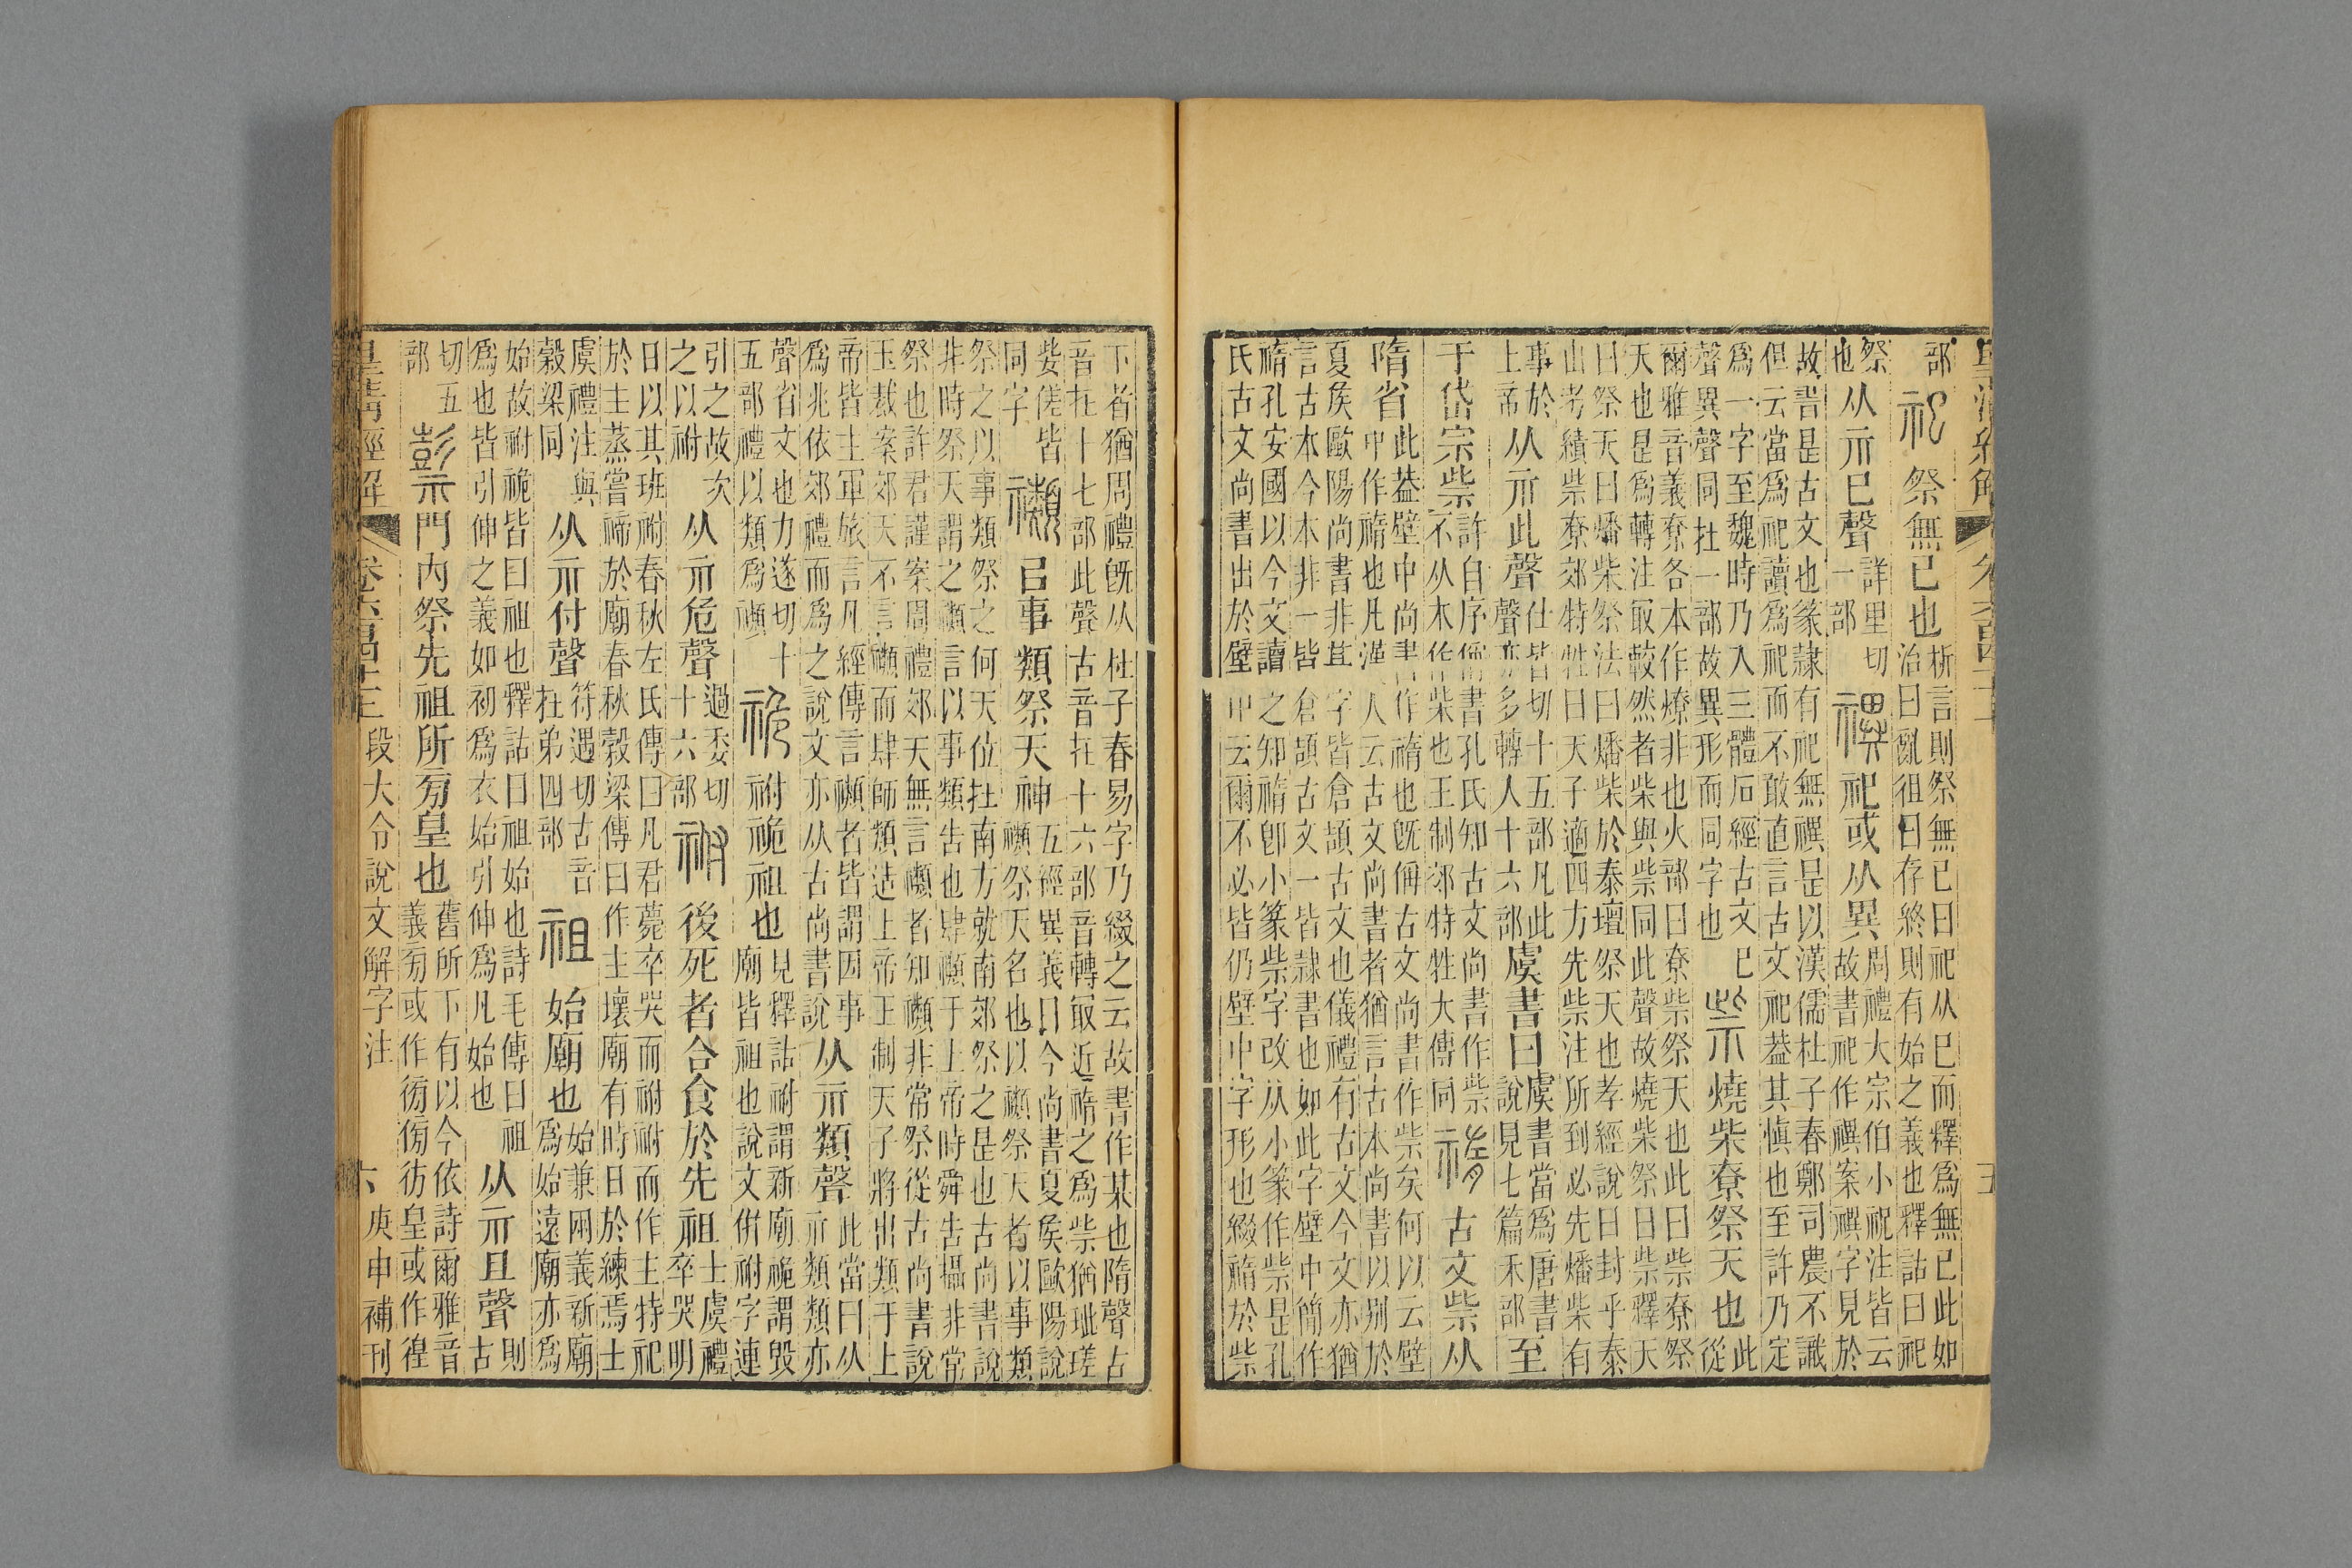 部祀祭無巳也析言則祭無巳曰祀从巳而釋爲無巳此如治曰亂徂曰存終則有始之義也釋詁曰祀
祭也从示巳聲詳里切一部禩祀或从異周禮大宗伯小祝注皆云故書祀作禩案禩字見於
故書是古文也篆隷有祀無禩是以漢儒杜子春鄭司農不識但云當爲祀讀爲祀而不敢直言古文祀葢其愼也至許乃定
爲一字至魏時乃入三體石經古文巳聲異聲同在一部故異形而同字也祡燒柴尞祭天也此從
爾雅音義尞各本作燎非也火部曰尞祡祭天也此曰祡尞祭天也是爲轉注取較然者柴與祡同此聲故燒柴祭曰祡釋天
曰祭天曰燔柴祭法曰燔柴於泰壇祭天也孝經說曰封乎泰山考績祡尞郊特牲曰天子適四方先柴注所到必先燔柴有
事於上帝从示此聲仕皆切十五部凡此聲亦多轉入十六部虞書曰虞書當爲唐書說見七篇禾部至
于岱宗祡許自序偁書孔氏知古文尚書作祡不从木作柴也王制郊特牲大傳同䄠古文祡从
隋省此葢壁中尚書作䄠也旣偁古文尚書作祡矣何以云壁中作䄠也凡漢人云古文尚書者猶言古本尚書以别於
夏矦歐陽尚書非其字皆倉頡古文也儀禮有古文今文亦猶言古本今本非一皆倉頡古文一皆隷書也如此字壁中簡作
䄠孔安國以今文讀之知䄠卽小篆祡字改从小篆作祡是孔氏古文尚書出於壁中云爾不必皆仍壁中字形也綴䄠於祡
下者猶周禮旣从杜子春易字乃綴之云故書作某也隋聲古音在十七部此聲古音在十六部音轉取近䄠之爲祡猶玼瑳
姕傞皆同字禷㠯事類祭天神五經異義曰今尚書夏矦歐陽說禷祭天名也以禷祭天者以事類
祭之以事類祭之何天位在南方就南郊祭之是也古尚書說非時祭天謂之禷言以事類告也肆禷于上帝時舜告攝非常
祭也許君謹案周禮郊天無言禷者知禷非常祭從古尚書說玉裁案郊天不言禷而肆師類造上帝王制天子將出類于上
帝皆主軍旅言凡經傳言禷者皆謂因事爲兆依郊禮而爲之說文亦从古尚書說从示類聲此當曰从示類類亦
聲省文也力遂切十五部禮以類爲禷祪祔祪祖也見釋詁祔謂新廟祪謂毁廟皆祖也說文倂祔字連
引之故次之以祔从示危聲過委切十六部祔後死者合食於先祖士虞禮卒哭明
日以其班祔春秋左氏傳曰凡君薨卒哭而祔祔而作主特祀於主蒸嘗禘於廟春秋穀梁傳曰作主壞廟有時日於練焉士
虞禮注與穀梁同从示付聲符遇切古音在弟四部祖始廟也始兼兩義新廟爲始遠廟亦爲
始故祔祪皆曰祖也釋詁曰祖始也詩毛傳曰祖則爲也皆引伸之義如初爲衣始引伸爲凡始也从示且聲則古
切五部𥛱門內祭先祖所㫄皇也舊所下有以今依詩爾雅音義㫄或作徬傍彷皇或作徨
皇清經解 卷六百四十三 段大令說文解字注 六 庚申補刊